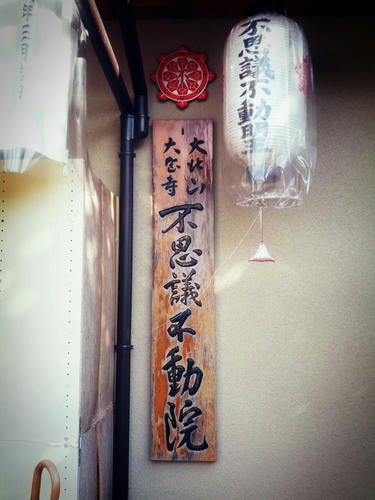 大北山
大宮寺
不思議不動院
不思議不動明王